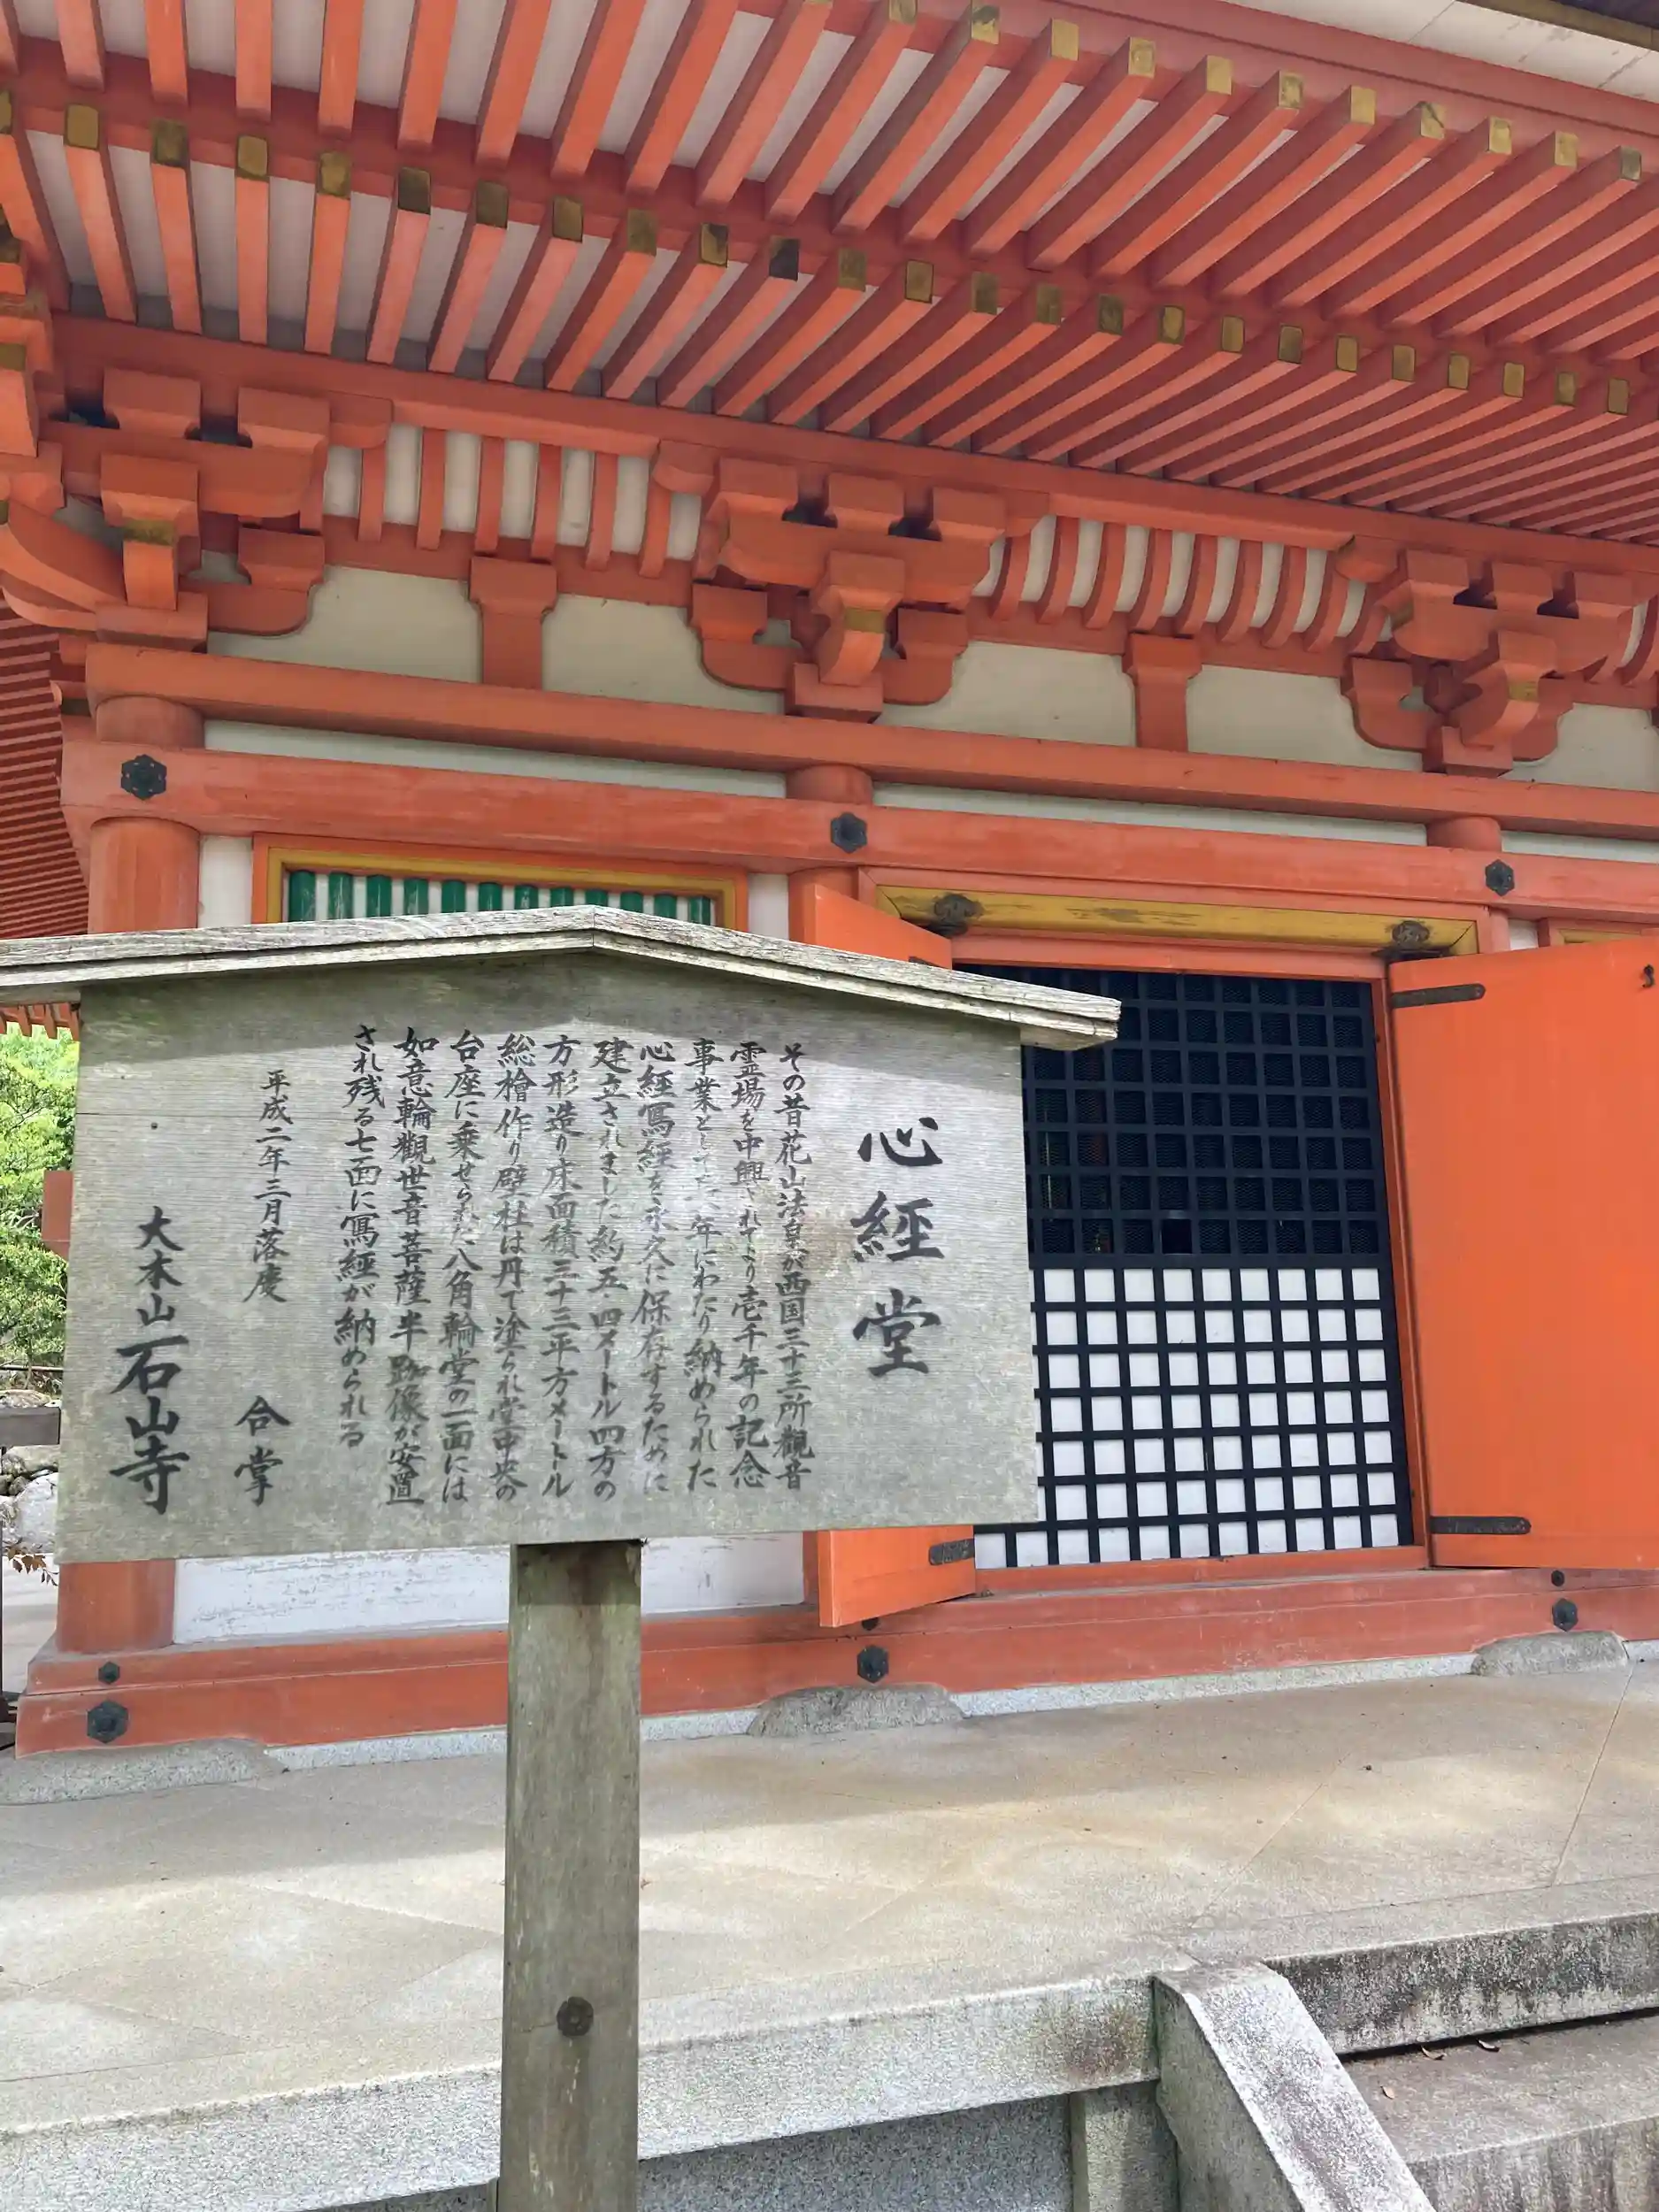 心經堂
その昔花山法皇が西国三十三所觀音
霊場を中興されてより壱千年の記念
事業として 年にわたり納められた
心經寫経を永久に保存するために
建立されました約五・四メートル四方の
方形造り床面積三十三平方メートル
総檜作り壁柱は丹で塗られ堂中央の
台座に乗せられた八角輪堂の一面には
如意輪觀世音菩薩半跏像が安置
され残る七面に寫經が納められる
平成二年三月落慶
合掌
大本山石山寺